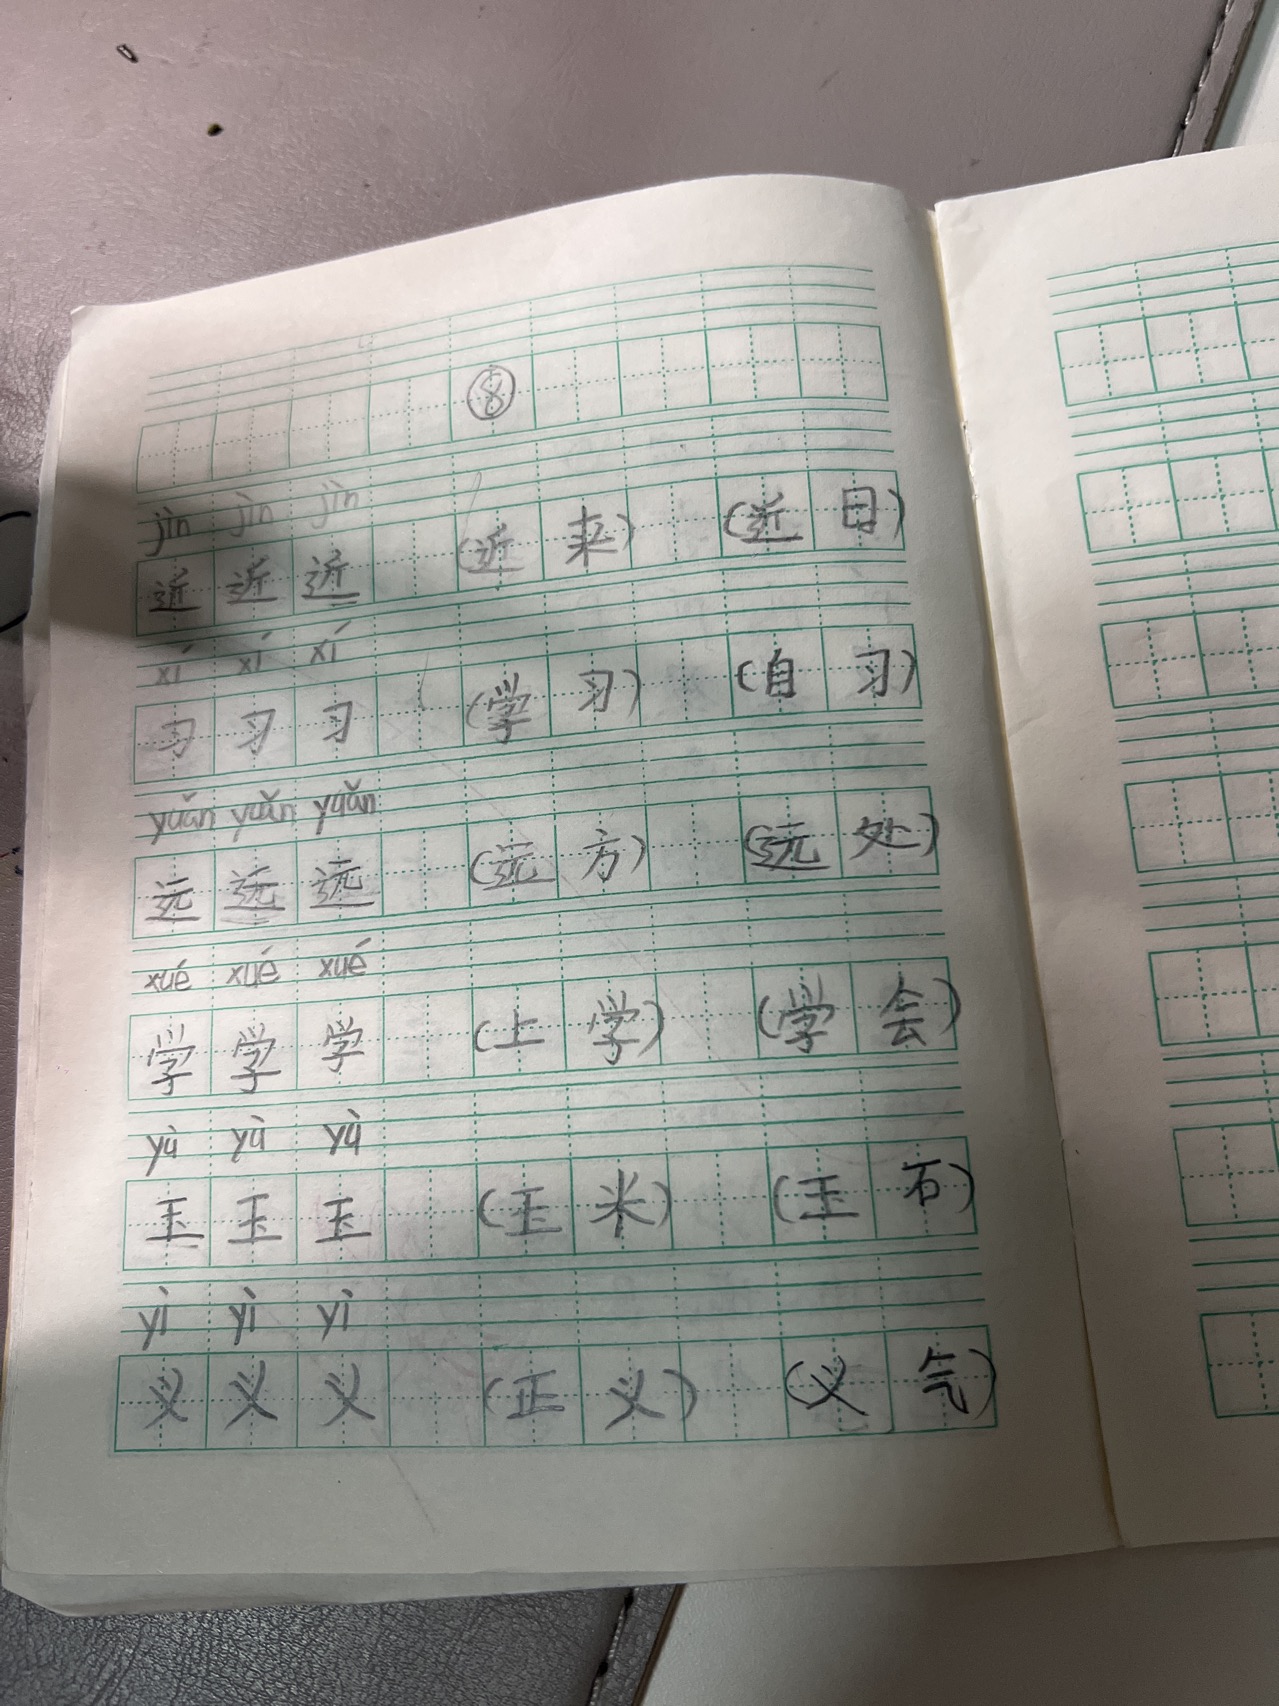 ⑧
jìn jìn jìn
近 近 近 (近 来) (近 日)
xí xí xí
习 习 习 (学 习) (自 习)
yuǎn yuǎn yuǎn
远 远 远 (远 方) (远 处)
xué xué xué
学 学 学 (上 学) (学 会)
yù yù yù
玉 玉 玉 (玉 米) (玉 石)
yì yì yì
义 义 义 (正 义) (义 气)